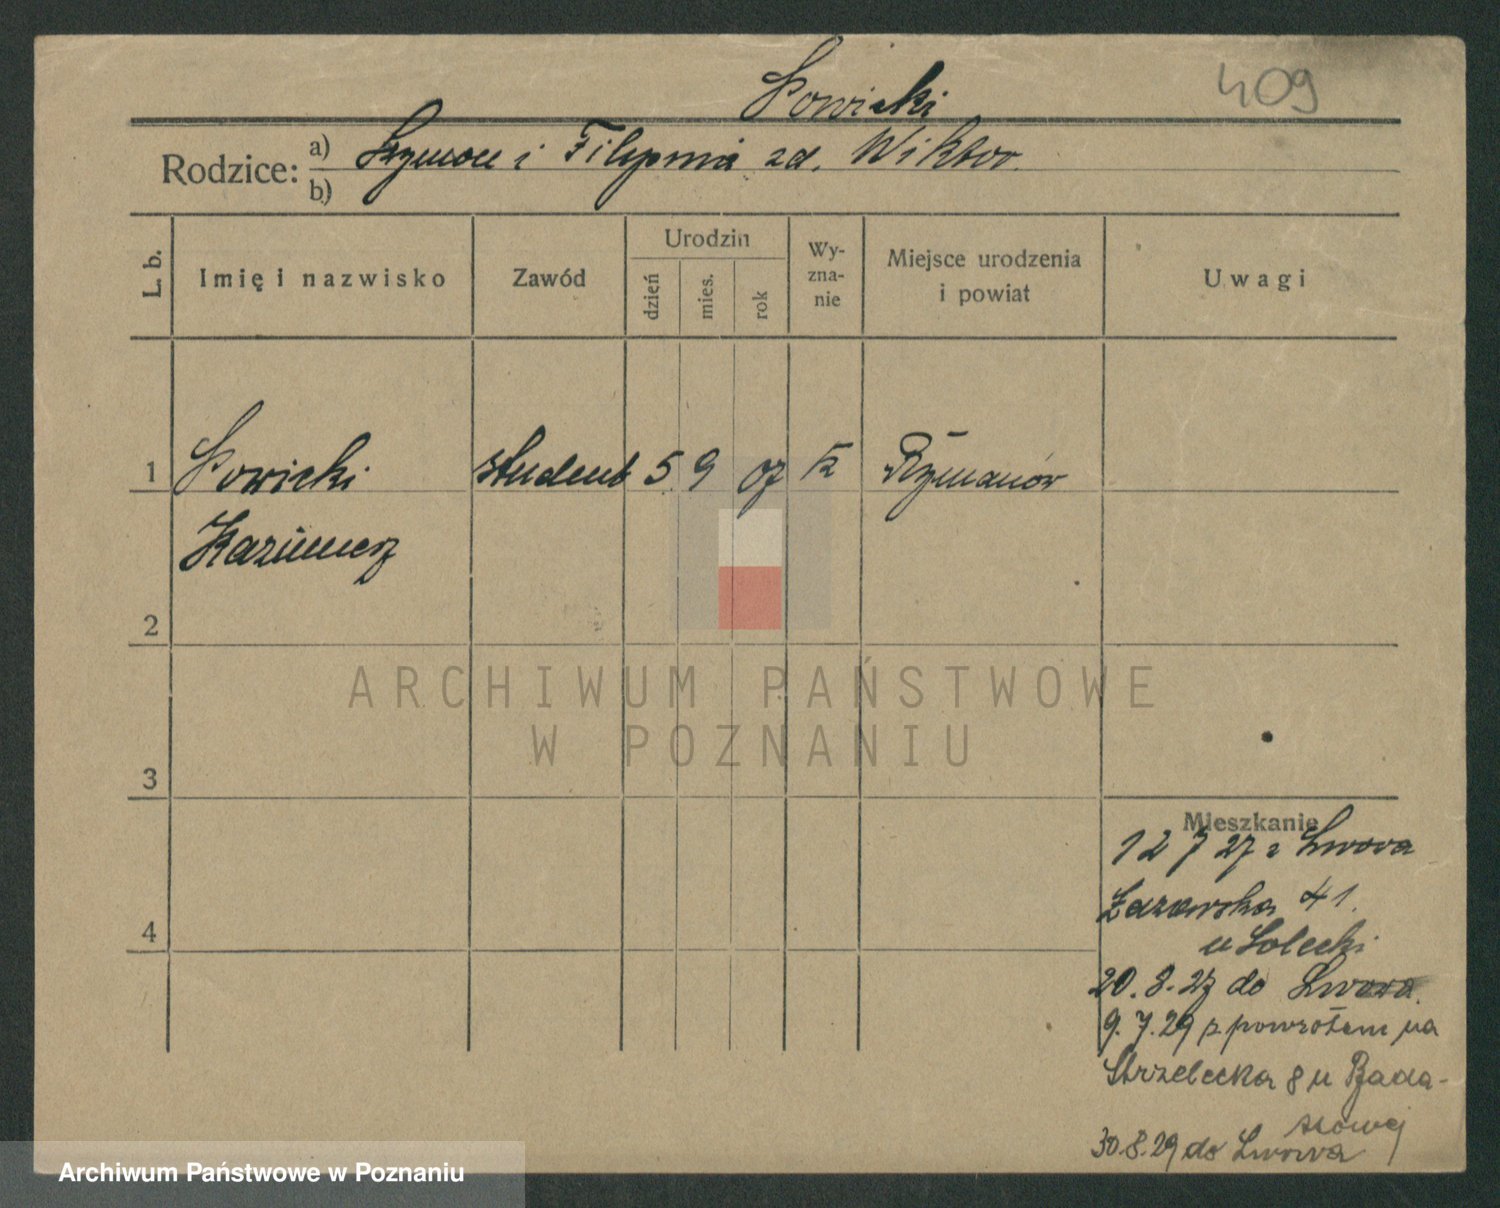 409
Sowicki
Rodzice: a) Szymon i Filipina zd. Wiktor
b)
L. b.
Imię i nazwisko
Zawód
Urodzin
dzień
mies.
rok
Wy-
zna-
nie
Miejsce urodzenia
i powiat
Uwagi
1 Sowicki student 5 9 07 rz Rymanów
Kazimierz
2
3
4
ARCHIWUM PAŃSTWOWE
W POZNANIU
Mieszkanie
12 7 27 z Lwowa
41.
u Solecki
20.8.27 do Lwowa.
9.7.29 z powrotem na
Strzelecka 8 u Bada-
szowej
30.8.29 do Lwowa
Archiwum Państwowe w Poznaniu